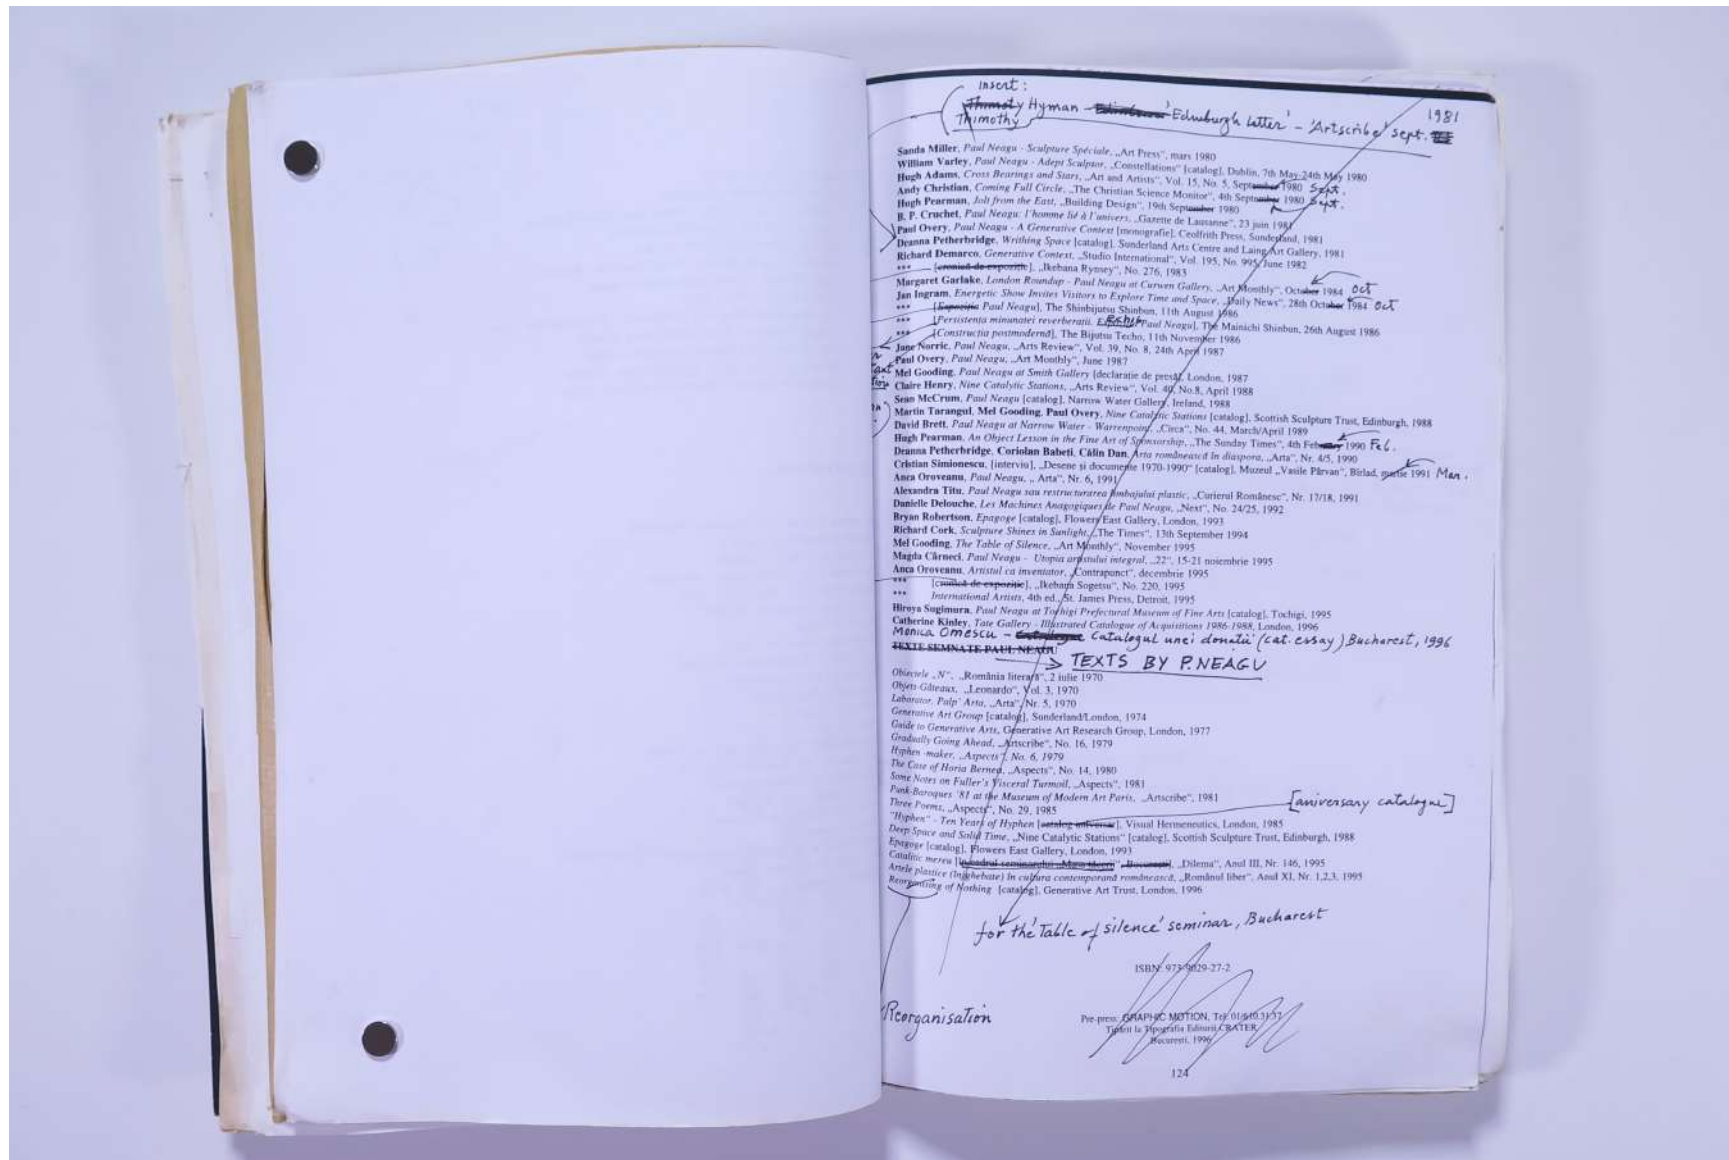 insert:
Thimoty Hyman - 'Edinburgh Letter' - 'Artscribe' sept. 1981
Thimothy
Sanda Miller, Paul Neagu - Sculpture Spéciale, „Art Press", mars 1980
William Varley, Paul Neagu - Adept Sculptor, „Constellations" [catalog], Dublin, 7th May-24th May 1980
Hugh Adams, Cross Bearings and Stars, „Art and Artists", Vol. 15, No. 5, September 1980 Sept.
Andy Christian, Coming Full Circle, „The Christian Science Monitor", 4th September 1980 Sept.
Hugh Pearman, Jolt from the East, „Building Design", 19th September 1980
B. P. Cruchet, Paul Neagu: l'homme lié à l'univers, „Gazette de Lausanne", 23 juin 1981
Paul Overy, Paul Neagu - A Generative Context [monografie], Ceolfrith Press, Sunderland, 1981
Deanna Petherbridge, Writhing Space [catalog], Sunderland Arts Centre and Laing Art Gallery, 1981
Richard Demarco, Generative Context, „Studio International", Vol. 195, No. 995, June 1982
*** [cronică de expoziţie], „Ikebana Ryusey", No. 276, 1983
Margaret Garlake, London Roundup - Paul Neagu at Curwen Gallery, „Art Monthly", October 1984 Oct
Jan Ingram, Energetic Show Invites Visitors to Explore Time and Space, „Daily News", 28th October 1984 Oct
*** [Expoziţie Paul Neagu], The Shinbijutsu Shinbun, 11th August 1986
*** [Persistenta minunatei reverberatii. Paul Neagu], The Mainichi Shinbun, 26th August 1986
*** [Constructia postmodernă], The Bijutsu Techo, 11th November 1986
Jane Norrie, Paul Neagu, „Arts Review", Vol. 39, No. 8, 24th April 1987
Paul Overy, Paul Neagu, „Art Monthly", June 1987
Mel Gooding, Paul Neagu at Smith Gallery [declaratie de presă], London, 1987
Claire Henry, Nine Catalytic Stations, „Arts Review", Vol. 40, No.8, April 1988
Sean McCrum, Paul Neagu [catalog], Narrow Water Gallery, Ireland, 1988
Martin Tarangul, Mel Gooding, Paul Overy, Nine Catalytic Stations [catalog], Scottish Sculpture Trust, Edinburgh, 1988
David Brett, Paul Neagu at Narrow Water - Warrenpoint, „Circa", No. 44, March/April 1989
Hugh Pearman, An Object Lesson in the Fine Art of Sponsorship, „The Sunday Times", 4th February 1990 Feb.
Deanna Petherbridge, Coriolan Babeti, Călin Dan, Arta românească în diaspora, „Arta", Nr. 4/5, 1990
Cristian Simionescu, [interviu], „Desene şi documente 1970-1990" [catalog], Muzeul „Vasile Pârvan", Bîrlad, martie 1991 Mar.
Anca Oroveanu, Paul Neagu, „ Arta", Nr. 6, 1991
Alexandra Titu, Paul Neagu sau restructurarea limbajului plastic, „Curierul Românesc", Nr. 17/18, 1991
Danielle Delouche, Les Machines Anagogiques de Paul Neagu, „Next", No. 24/25, 1992
Bryan Robertson, Epagoge [catalog], Flowers East Gallery, London, 1993
Richard Cork, Sculpture Shines in Sunlight, „The Times", 13th September 1994
Mel Gooding, The Table of Silence, „Art Monthly", November 1995
Magda Cârneci, Paul Neagu - Utopia artistului integral, „22", 15-21 noiembrie 1995
Anca Oroveanu, Artistul ca inventator, „Contrapunct", decembrie 1995
*** [cronică de expoziţie], „Ikebana Sogetsu", No. 220, 1995
*** International Artists, 4th ed., St. James Press, Detroit, 1995
Hiroya Sugimura, Paul Neagu at Tochigi Prefectural Museum of Fine Arts [catalog], Tochigi, 1995
Catherine Kinley, Tate Gallery - Illustrated Catalogue of Acquisitions 1986-1988, London, 1996
Monica Omescu - Catalogul unei donatii (cat. essay) Bucharest, 1996
TEXTE SEMNATE PAUL NEAGU
TEXTS BY P. NEAGU
Obiectele „N", „România literară", 2 iulie 1970
Objets-Gâteaux, „Leonardo", Vol. 3, 1970
Laborator, Palp' Arta, „Arta", Nr. 5, 1970
Generative Art Group [catalog], Sunderland/London, 1974
Guide to Generative Arts, Generative Art Research Group, London, 1977
Gradually Going Ahead, „Artscribe", No. 16, 1979
Hyphen -maker, „Aspects", No. 6, 1979
The Case of Horia Bernea, „Aspects", No. 14, 1980
Some Notes on Fuller's Visceral Turmoil, „Aspects", 1981
Punk-Baroques '81 at the Museum of Modern Art Paris, „Artscribe", 1981
[aniversary catalogue]
Three Poems, „Aspects", No. 29, 1985
"Hyphen" - Ten Years of Hyphen [catalog aniversar], Visual Hermeneutics, London, 1985
Deep Space and Solid Time, „Nine Catalytic Stations" [catalog], Scottish Sculpture Trust, Edinburgh, 1988
Epagoge [catalog], Flowers East Gallery, London, 1993
Catalitic mereu [în cadrul seminarului „Masa tăcerii", Bucuresti], „Dilema", Anul III, Nr. 146, 1995
Artele plastice (înjghebate) în cultura contemporană românească, „Românul liber", Anul XI, Nr. 1,2,3, 1995
Reorganising of Nothing [catalog], Generative Art Trust, London, 1996
for the 'Table of silence' seminar, Bucharest
ISBN: 973-9029-27-2
Reorganisation
Pre-press: GRAPHIC MOTION, Tel. 01/610.31.37
Tipărit la Tipografia Editurii CRATER
Bucuresti, 1996
124